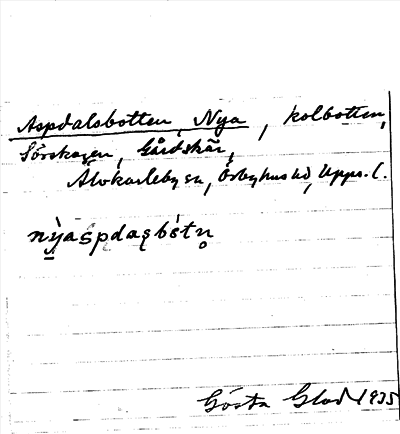 Aspdalsbotten, Nya, kolbotten,
Sörskogen, Gårdskär,
Älvkarleby sn, Örbyhus hd, Upps. l.
Gösta Glad 1935